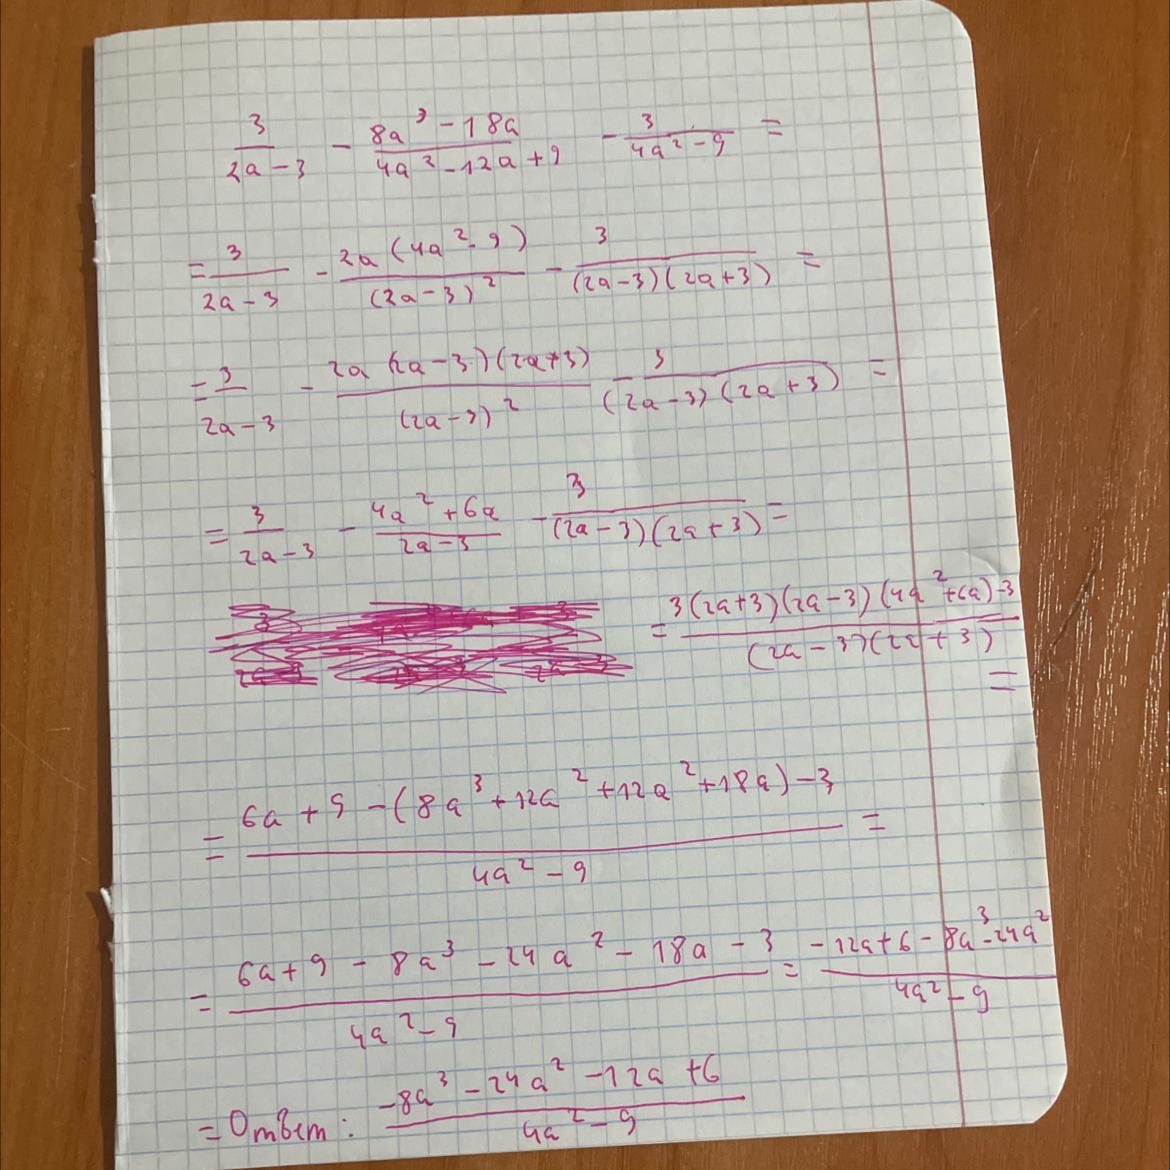 3/(2a-3) - (8a³-18a)/(4a²-12a+9) - 3/(4a²-9) =
= 3/(2a-3) - 2a(4a²-9)/(2a-3)² - 3/((2a-3)(2a+3)) =
= 3/(2a-3) - 2a(2a-3)(2a+3)/(2a-3)² - 3/((2a-3)(2a+3)) =
= 3/(2a-3) - (4a²+6a)/(2a-3) - 3/((2a-3)(2a+3)) =
= (3(2a+3)(2a-3)(4a²+6a)-3)/((2a-3)(2a+3)) =
= (6a+9-(8a³+12a²+12a²+18a)-3)/(4a²-9) =
= (6a+9-8a³-24a²-18a-3)/(4a²-9) = (-12a+6-8a³-24a²)/(4a²-9)
= Ответ: (-8a³-24a²-12a+6)/(4a²-9)